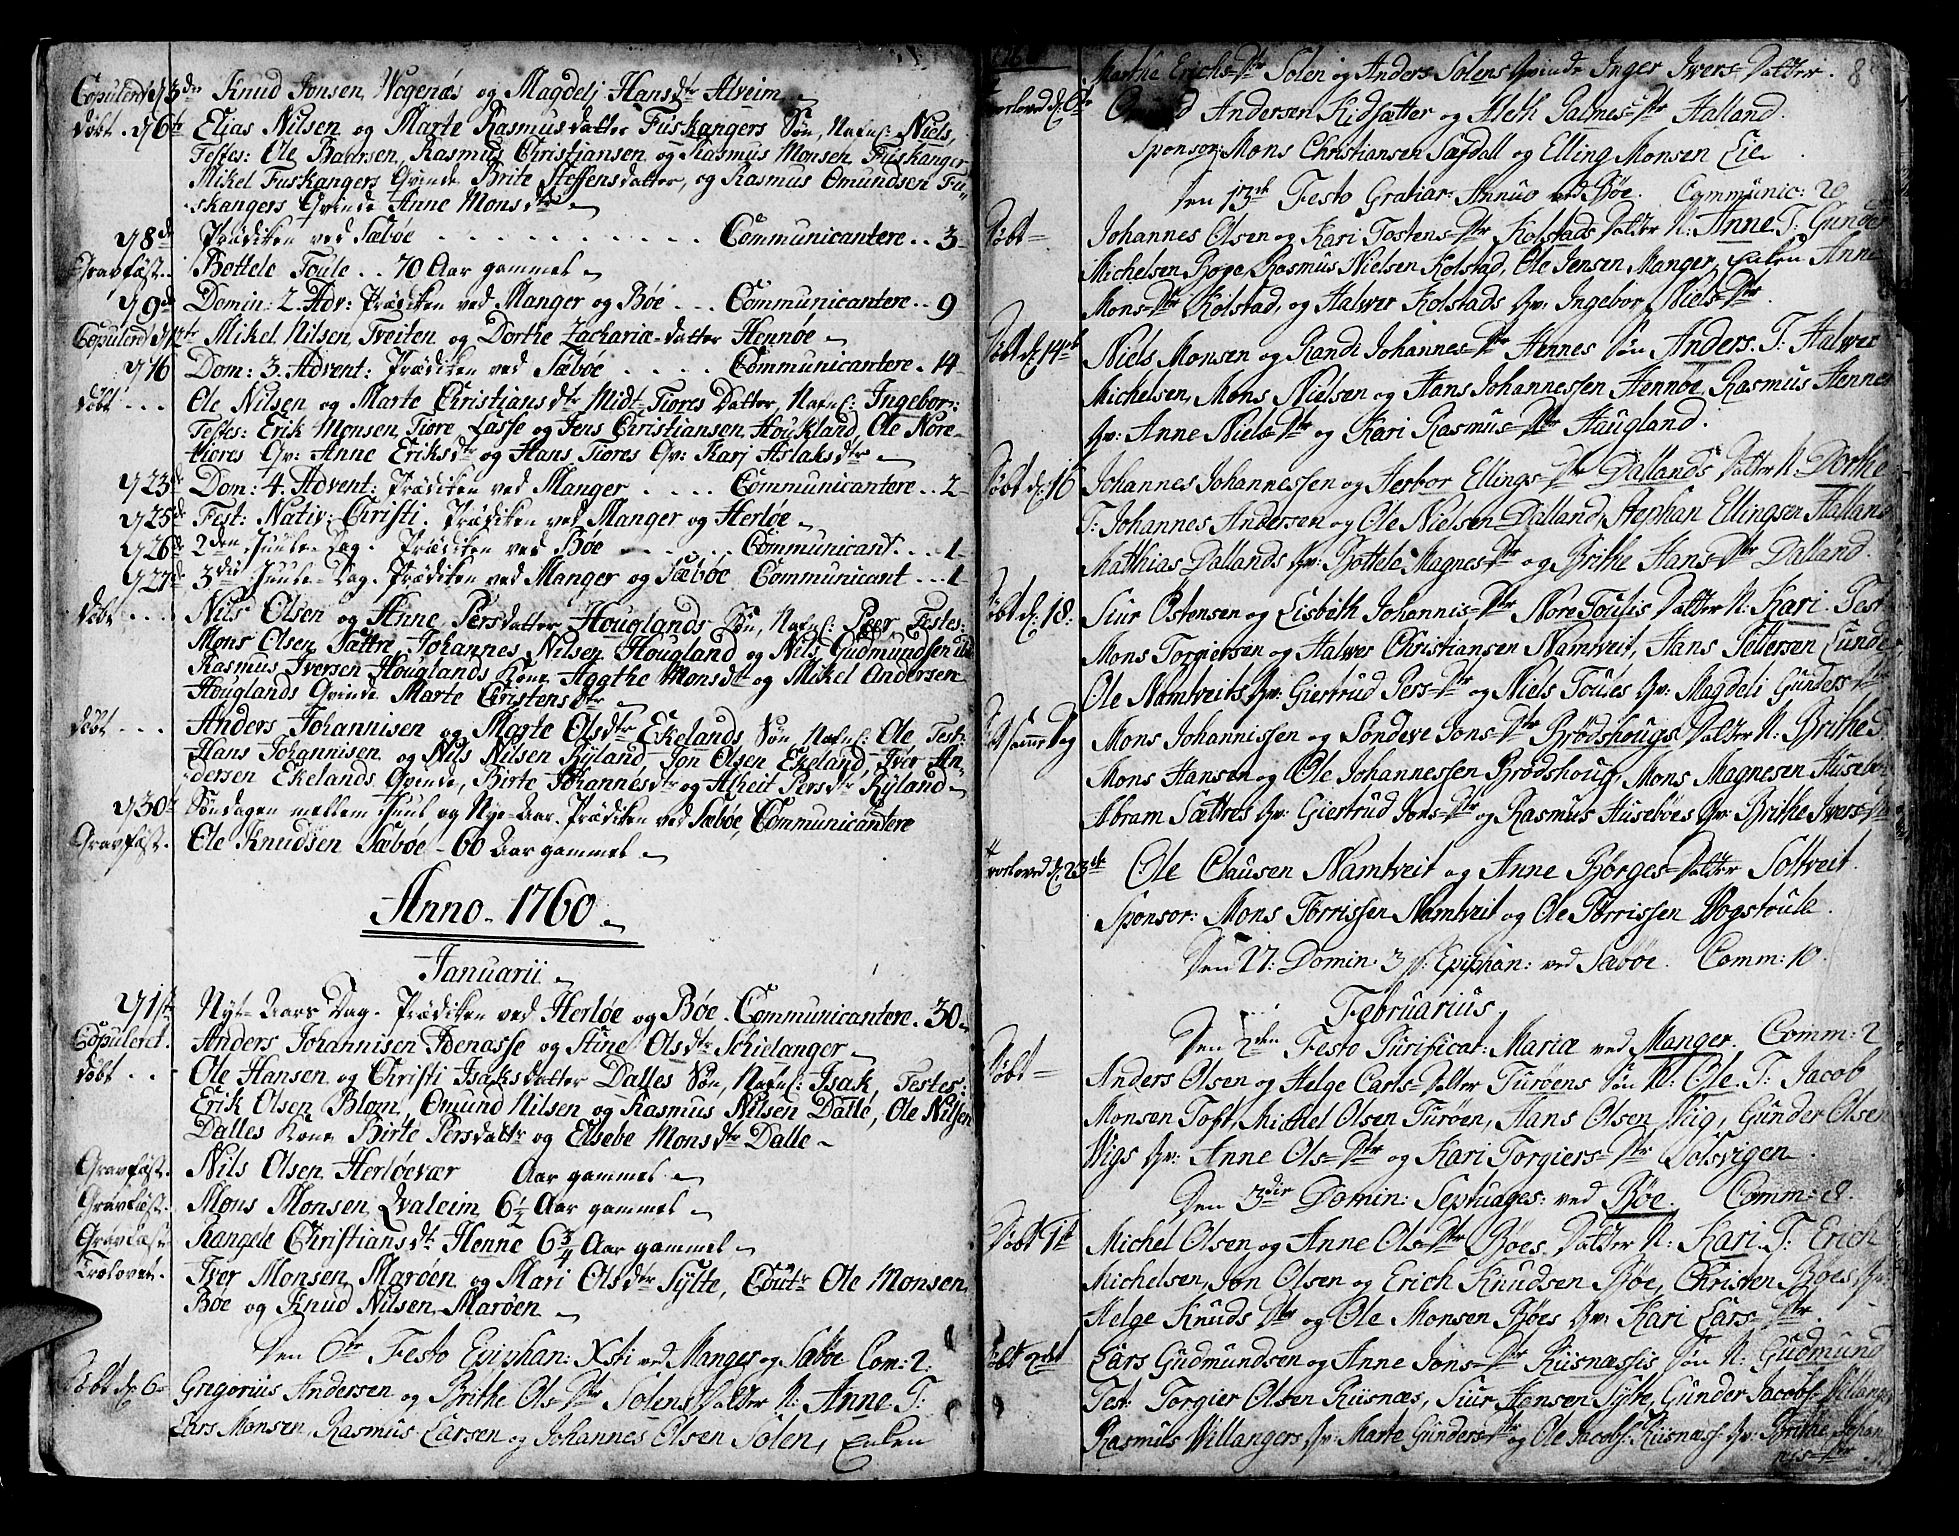 Copulerd d 3de Knud Jonsen Wogenøs og Magdelj Hansdtr Alveim
døbt. d 6te Eljas Nilsen og Marte Rasmusdatter Fuskangers Søn, Nafnl: Niels,
Testes: Ole Baarsen, Rasmus Christjansen og Rasmus Monsen Fuskanger
Mikel Fuskangers Qvinde Brite Steffensdatter, og Rasmus Omundsen Fu-
skangers Qvinde Anne Monsdtr
d 8de Prædiken ved Sæbøe Communicantere 3
Gravfæst. Bottele Toule .. 70 Aar gammel
d 9de Domin: 2. Adv: Prædiken ved Manger og Bøe Communicantere 9
Copulerd d 12te Mikel Nilsen Tveiten og Dorthe Zachariæ-datter Hennøe
d 16 Dom: 3. Advent: Prædiken ved Sæbøe Communicantere 14
døbt Ole Nilsen og Marte Christiansdtr Midt-Tiøres Datter, Nafnl: Ingebor:
Testes: Erik Monsen Tiøre Lasse og Jens Christiansen Houkland, Ole Nore-
tiøres Qv: Anne Eriksdtr og Hans Tiøres Qv: Karj Aslaksdtr
d 23de Dom: 4. Advent: Prædiken ved Manger Communicantere 2
d 25de Fest: Nativ: Christi. Prædiken ved Manger og Herløe
d 26de 2den Juule-Dag. Prædiken ved Bøe Communicant. 1
d 27de 3die Juule-Dag. Prædiken ved Manger og Sæbøe Communicant 1
døbt Nils Olsen og Anne Persdatter Houglands Søn, Nafnl: Peer, Testes:
Mons Olsen Sættre, Johannes Nilsen Hougland og Nils Gudmundsen
Rasmus Iversen Houglands Kone Aggthe Monsdtr og Mikel Andersen
Houglands Qvinde Marte Christensdtr
døbt Anders Johannisen og Marte Olsdtr Ekelands Søn Nafnl: Ole Test:
Hans Johannisen og Nils Nilsen Ryland, Jon Olsen Ekeland, Iver An-
dersen Ekelands Qvinde, Birte Johannesdtr og Alheit Persdtr Ryland
d 30te Søndagen mellem Juul og Nye-Aar. Prædiken ved Sæbøe, Communicantere
Gravfæst. Ole Knudsen Sæbøe - 60 Aar gammel
Anno 1760
Januarii
d 1ste Nyt-Aars Dag. Prædiken ved Herløe og Bøe. Communicantere. 30
Copuleret. Anders Johannisen Adenasse og Stine Olsdtr Schielanger
døbt Ole Hansen og Christi Isaksdatter Dalles Søn, Nafnl: Isak, Testes:
Erik Olsen Blom, Omund Nilsen og Rasmus Nilsen Dalle, Ole Nilsen
Dalles Kone Birte Persdattr og Elsebe Monsdtr Dalle
Gravfæst. Nils Olsen Herløevær Aar gammel
Gravfæst. Mons Monsen Qvaleim 6 1/2 Aar gammel
Gravfæst Rangele Christiansdtr Henne 6 3/4 Aar gammel
Trolovet. Iver Monsen Marøen og Mari Olsdtr Sylte, Cautr Ole Monsen
Bøe og Knud Nilsen Marøen
Den 6te Festo Epiphan: Xsti ved Manger og Sæbøe Com: 2.
Døbt d. 6 Gregorius Andersen og Brithe Ols-Dtr Solens Datter N: Anne T:
Lars Monsen, Rasmus Larsen og Johannes Olsen Solen, Enken
Marthe Erichs-Dtr Solen og Anders Solens Qvinde Inger Ivers-Datter. 8
Andersen Kidsætter og Aleth Palmes-Dtr Halland.
Sponsor: Mons Christiansen Sægdall og Elling Monsen Eie
Den 13de Festo Gratiar: Annuo ved Bøe. Communic: 20
Døbt Johannes Olsen og Kari Tostens-Dtr Kolstads Datter N: Anne T: Gunder
Michelsen Bøpe, Rasmus Nielsen Kolstad, Ole Jensen Manger, Enken Anne
Mons-Dtr Kolstad, og Halver Kolstads Qv: Ingebor Niels-Dtr.
Døbt d. 14de Niels Monsen og Randi Johannes-Dtr Hennes Søn Anders. T: Halver
Michelsen, Mons Nielsen og Hans Johannessen Hennøe, Rasmus Hennes
Qv: Anne Niels-Dtr og Kari Rasmus-Dtr Haugland.
Døbt d. 16 Johannes Johannessen og Herbor Ellings-Dtr Dallands Datter N: Dorthe
T: Johannes Andersen og Ole Nielsen Dalland, Stephan Ellingsen Halland
Matthias Dallands Qv: Bottele Magnes-Dtr og Brithe Hans-Dtr Dalland.
Døbt d. 18. Siur Ostensen og Lisbeth Johannis-Dtr Nore Toulis Datter N: Kari. Test
Mons Torgiersen og Halver Christiansen Namtveit, Hans Pettersen Lunde
Ole Namtveits Qv: Giertrud Pers-Dtr og Niels Toules Qv: Magdeli Gunders-Dtr
samme Dag Mons Johannissen og Søndeve Jons-Dtr Brødshougs Datter N: Brithe
Mons Hansen og Ole Johannessen Brødshoug, Mons Magnesen Husebøe
Abram Sættres Qv: Giertrud Jons-Dtr og Rasmus Husebøes Qv: Brithe Ivers-Dtr
Troloved d. 23de Ole Clausen Namtveit og Anne Børges-Datter Soltveit.
Sponsor: Mons Tørrissen Namtveit og Ole Tørrissen Wogstoule.
Den 27: Domin: 3 p: Epiphan: ved Sæbøe. Comm: 10.
Februarius.
Den 2den Festo Purificat: Mariæ ved Manger. Comm: 2
Døbt Anders Olsen og Helge Carls-Datter Turøens Søn N: Ole. T: Jacob
Monsen Toft, Michel Olsen Turøen, Hans Olsen Wiig, Gunder Olsen
Wigs Qv: Anne Ols-Dtr og Kari Torgiers-Dtr Solsvigen.
Den 3die Domin: Septuages: ved Bøe. Comm: 8.
Døbt 1st Michel Olsen og Anne Ols-Dtr Bøes Datter N: Kari. T: Erich
Michelsen, Jon Olsen og Erich Knudsen Bøe, Christen Bøes Qv:
Helge Knuds-Dtr og Ole Monsen Bøes Qv: Kari Lars-Dtr.
Døbt 2det Lars Gudmundsen og Anne Jons-Dtr Riisnæssis Søn N: Gudmund
Test: Torgier Olsen Riisnæs, Siur Hansen Sylte, Gunder Jacobs: Willanger
Rasmus Willangers Qv: Marte Gunders-Dtr og Ole Jacobs: Riisnæs: Qv: Brithe Johan-
nis-Dtr